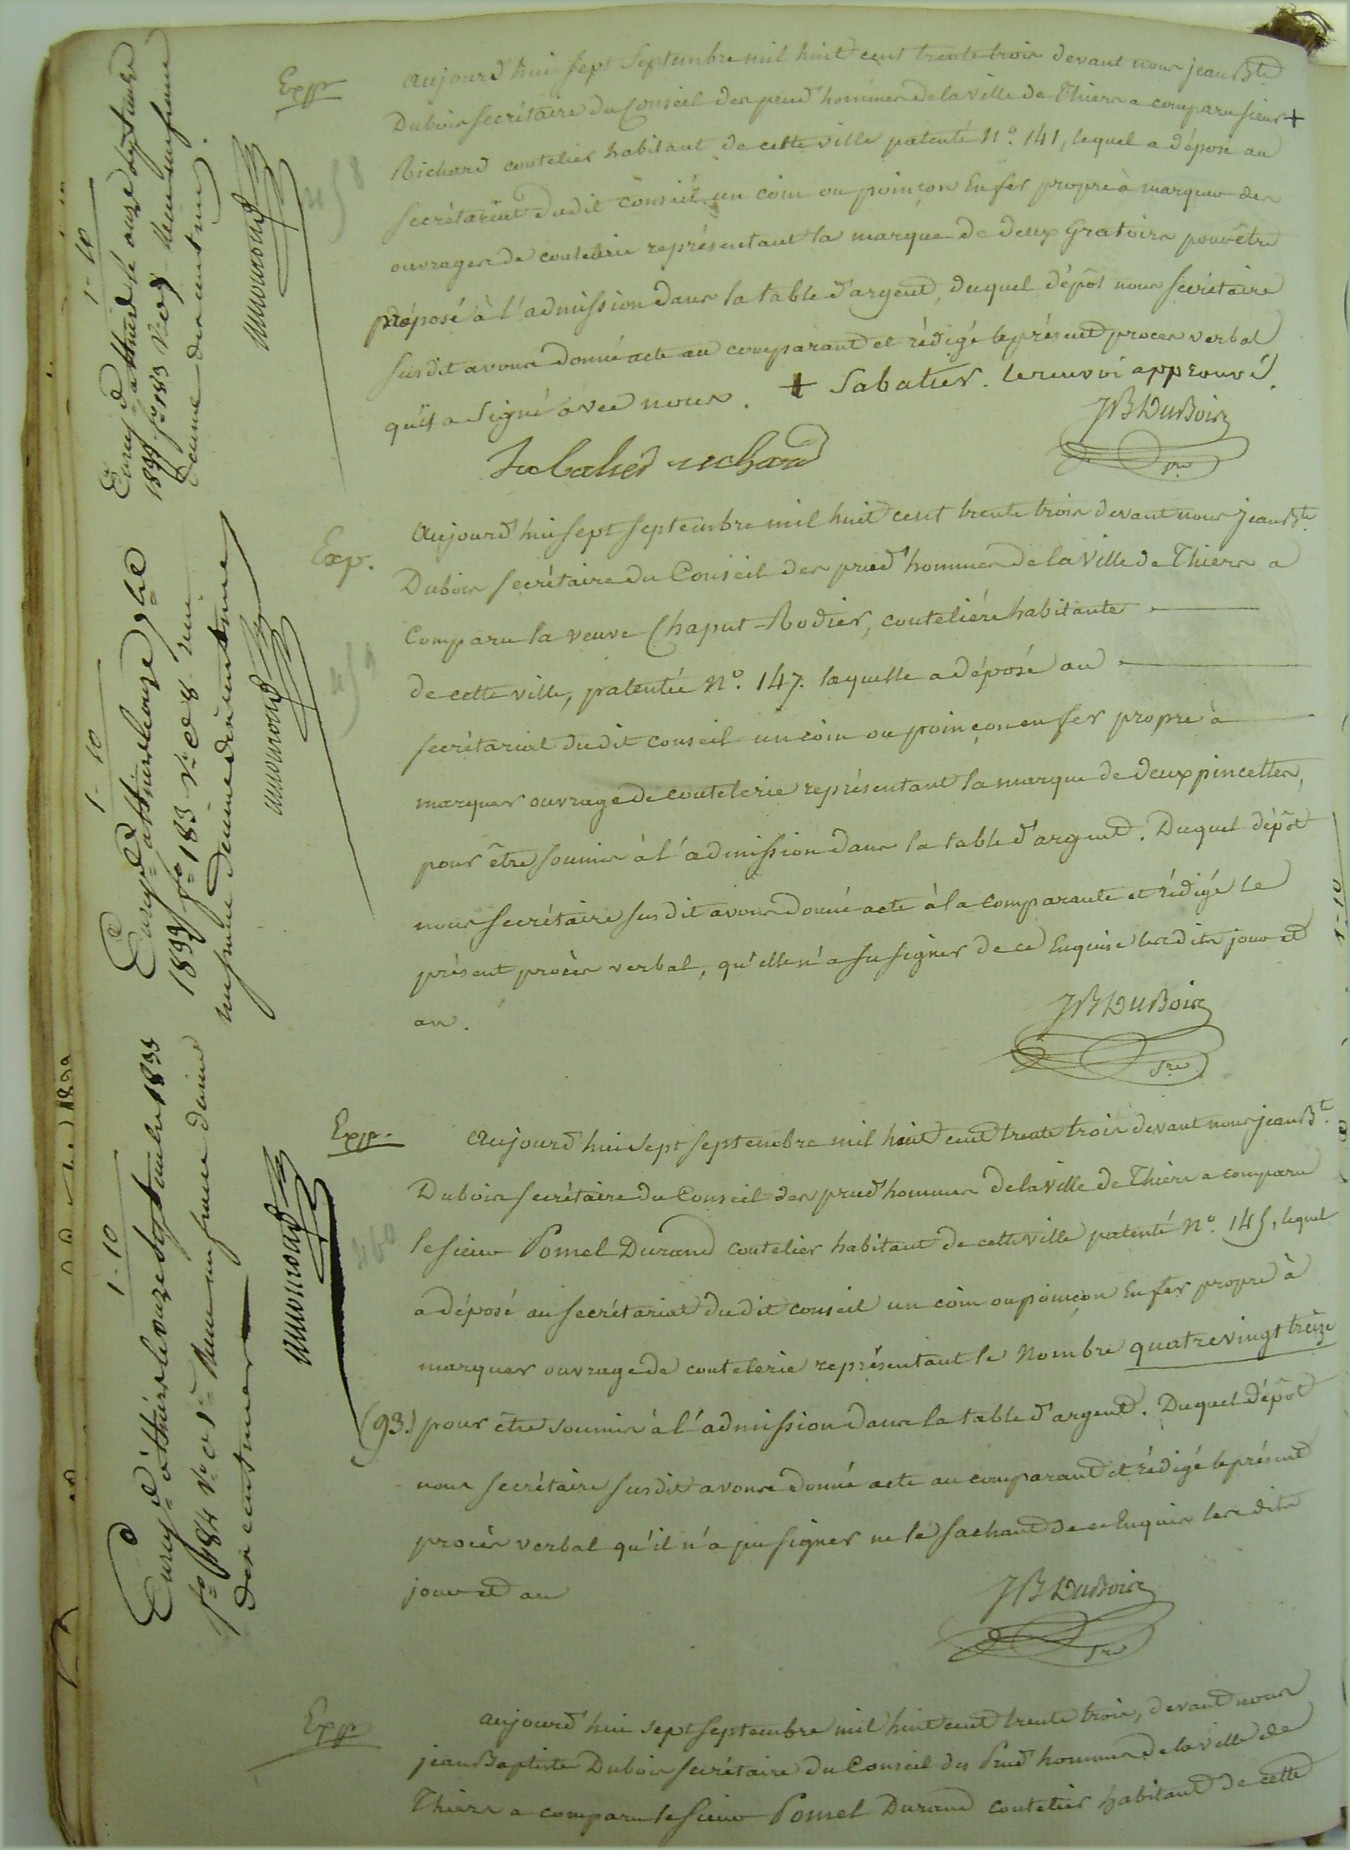 Exp.
aujourd'hui sept Septembre mil huit cent trente trois devant nous jean Bte
Dubois secrétaire du Conseil des prud'hommes de la ville de Thiers a comparu sieur +
Richard coutelier habitant de cette ville patenté N°. 141, lequel a déposé au
secrétariat dudit conseil un coin ou poinçon En fer propre à marquer des
ouvrages de coutelerie représentant la marque de deux Gratoirs pour être
préposé à l'admission dans la table d'argent, duquel dépôt nous secrétaire
susdit avons donné acte au comparant et rédigé le présent proces verbal
qu'il a Signé avec nous. + Sabatier. le renvoi approuvé.
Sabatier richard
JB Dubois
sre
458
1-10
Enregd. à thiers le onze septembre
1833 fo. 183 Ro. c. 7 Reçu un franc
Exp.
Aujourd'hui sept septembre mil huit cent trente trois devant nous jean Bte
Dubois secrétaire du Conseil des prud'hommes de la Ville de Thiers a
Comparu la veuve Chaput-Rodier, coutelière habitante
de cette ville, patentée N°. 147. laquelle a déposé au
secrétariat dudit conseil un coin ou poinçon en fer propre à
marquer ouvrage de coutelerie représentant la marque de deux pincettes,
pour être soumis à l'admission dans la table d'argent. Duquel dépôt
nous secrétaire susdit avons donné acte à la comparante et rédigé le
présent procès verbal, qu'elle n'a su signer de ce Enquise lesdits jour et
an.
JB Dubois
sre
459
1-10
Enregd. à thiers le onze 7bre
1833 fo. 183 Vo. c. 8. reçu
un franc dixième dix centimes
Exp.
Aujourd'hui sept septembre mil huit cent trente trois devant nous jean Bte.
Dubois secrétaire du Conseil des prud'hommes de la ville de Thiers a comparu
le sieur Pomel Durand coutelier habitant de cette ville patenté N°. 145, lequel
a déposé au secrétariat dudit conseil un coin ou poinçon En fer propre à
marquer ouvrage de coutelerie représentant le Nombre quatre vingt treize
(93.) pour être soumis à l'admission dans la table d'argent. Duquel dépôt
nous secrétaire susdit avons donné acte au comparant et rédigé le présent
procès verbal qu'il n'a pu signer ne le sachant de ce Enquis lesdits
jour et an
JB Dubois
sre
460
1-10
Enregd. à thiers le onze septembre 1833
fo. 184 Ro. c. 1re Reçu un franc dixième
dix centimes
Exp.
aujourd'hui sept septembre mil huit cent trente trois, devant nous
jean Baptiste Dubois secrétaire du Conseil des Prud'hommes de la ville de
Thiers a comparu le Sieur Pomel Durand coutelier habitant de cette